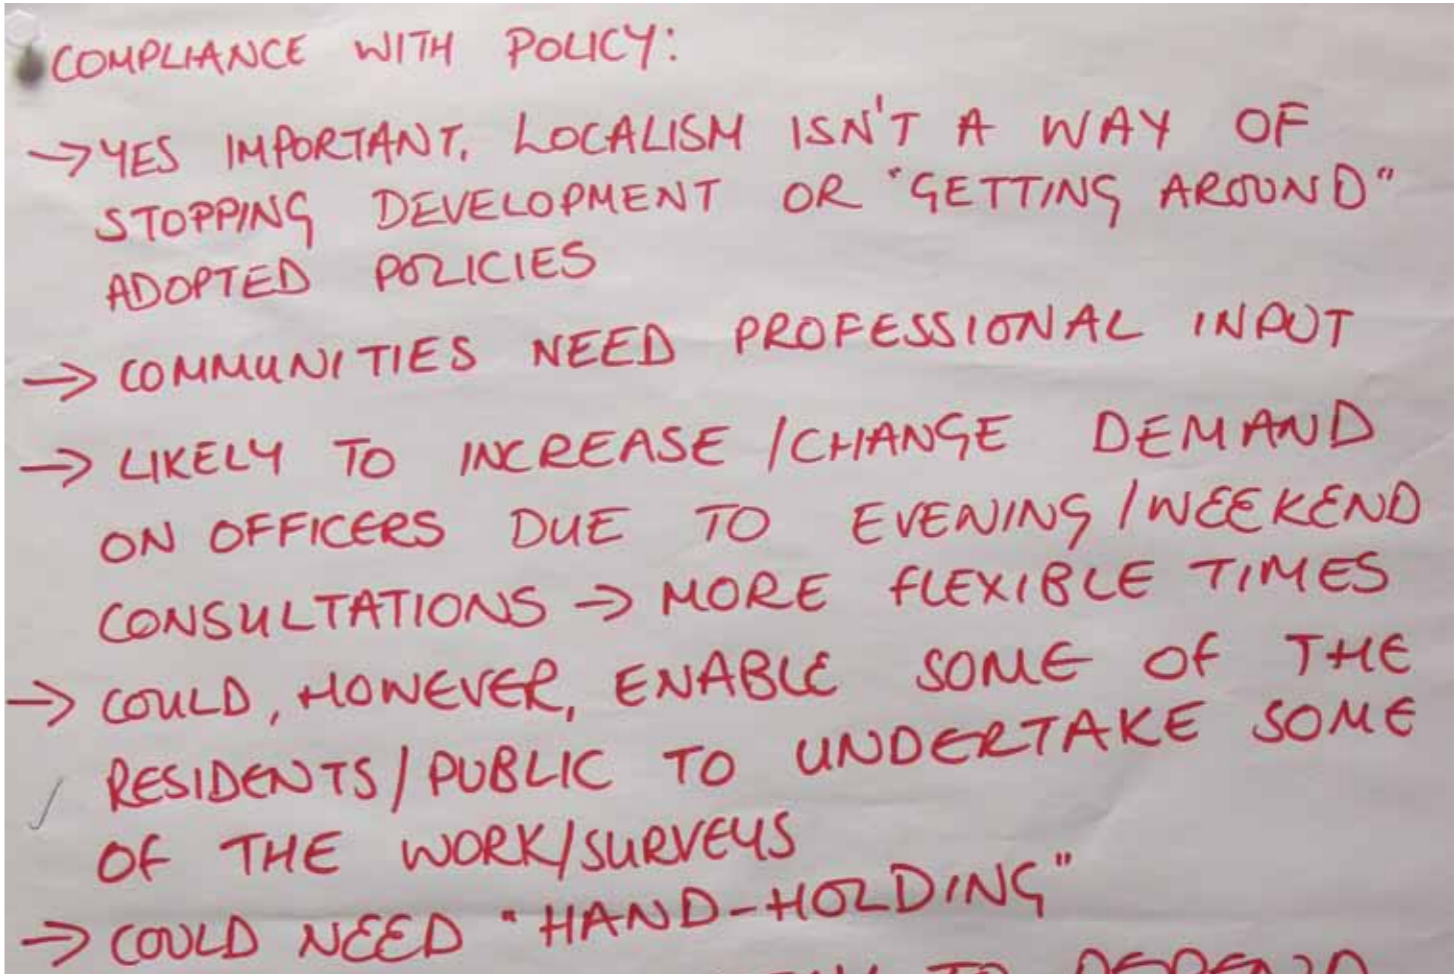 COMPLIANCE WITH POLICY:
→ YES IMPORTANT. LOCALISM ISN'T A WAY OF
STOPPING DEVELOPMENT OR "GETTING AROUND"
ADOPTED POLICIES
→ COMMUNITIES NEED PROFESSIONAL INPUT
→ LIKELY TO INCREASE / CHANGE DEMAND
ON OFFICERS DUE TO EVENING / WEEKEND
CONSULTATIONS → MORE FLEXIBLE TIMES
→ COULD, HOWEVER, ENABLE SOME OF THE
RESIDENTS / PUBLIC TO UNDERTAKE SOME
OF THE WORK/SURVEYS
→ COULD NEED "HAND-HOLDING"
TO DEPEND